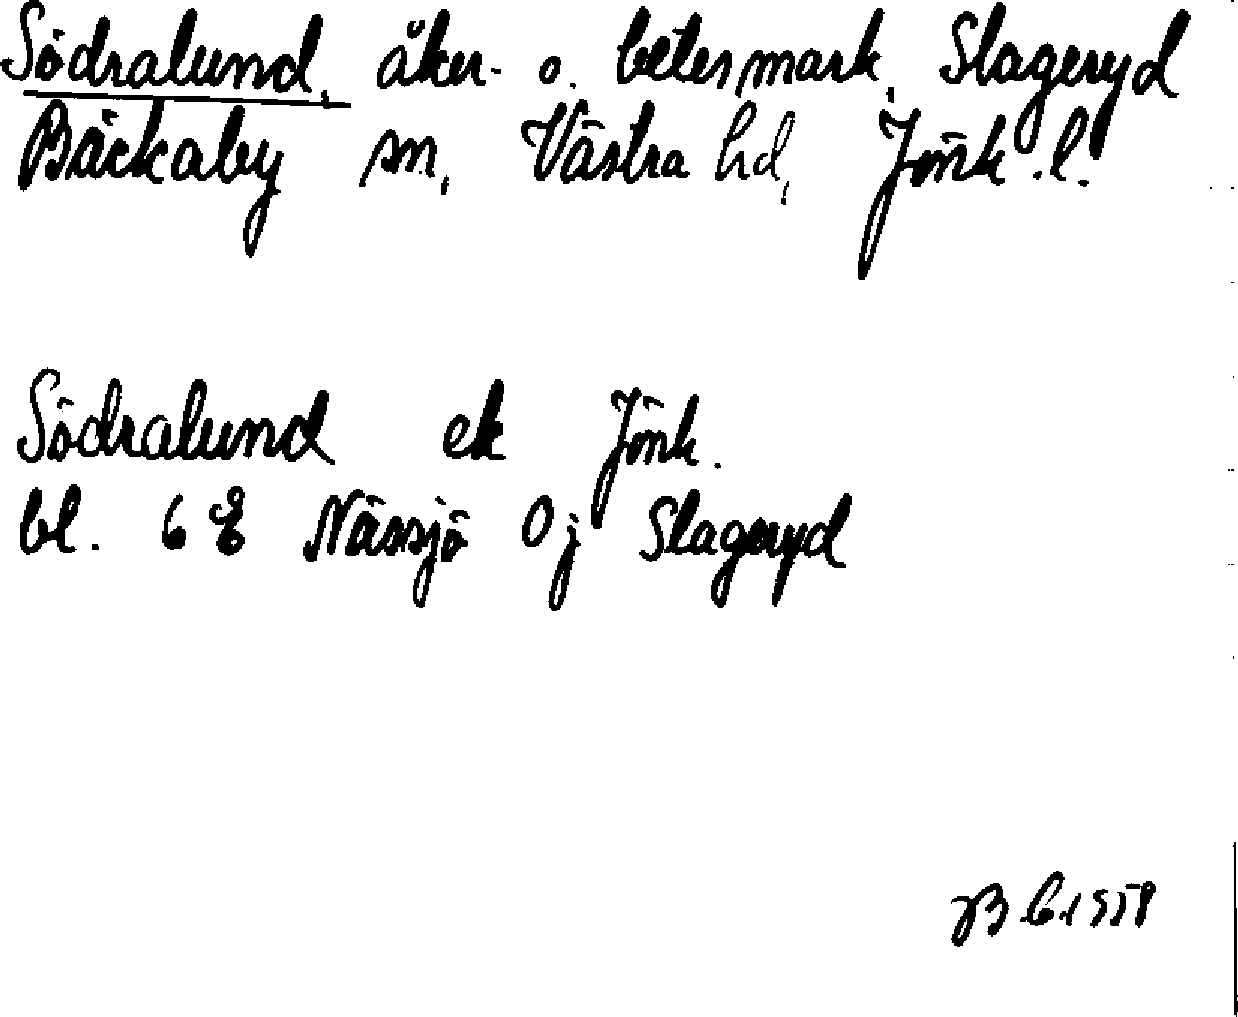 Södralund, åker- o. betesmark, Slageryd
Bäckaby sn, Västra hd, Jönk. l.
Södralund ek Jönk.
bl. 6 E Nässjö 0j Slageryd